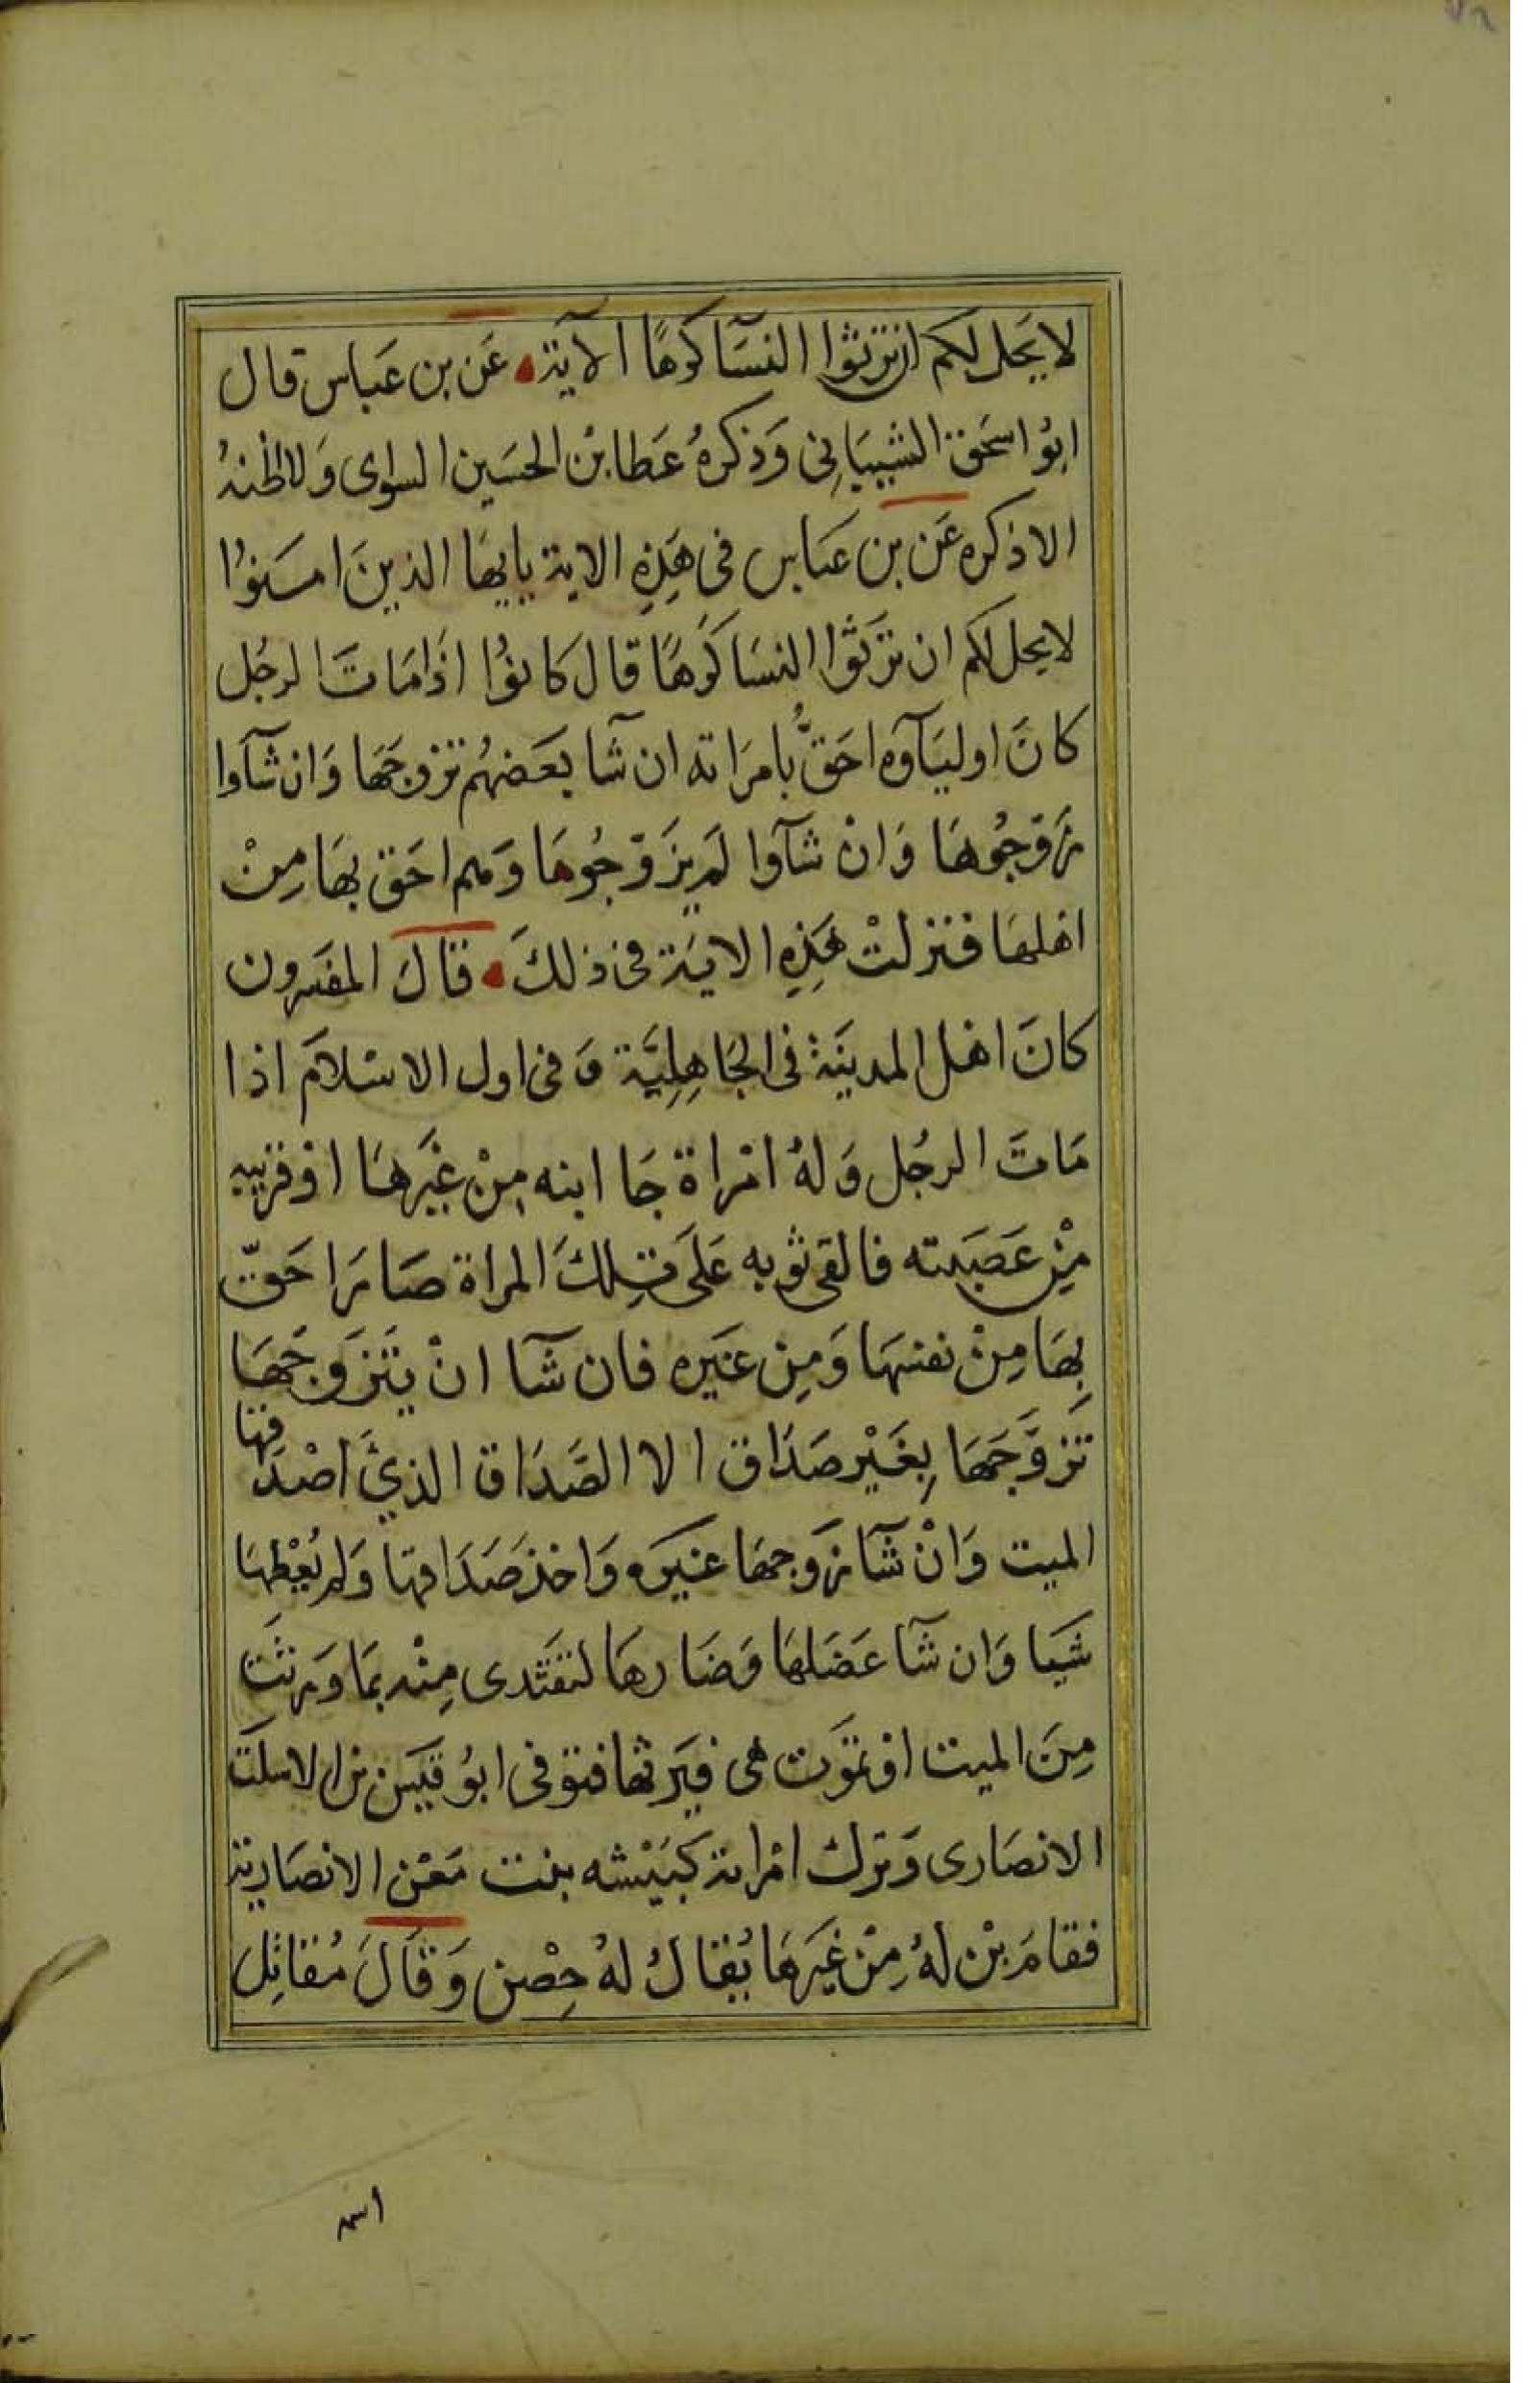 لا يَحل لكم ان ترثوا النسَآ كرهًا الآية عَن بن عَباس قال
ابُوا سحَق الشيبَانِى وَذكرهُ عَطا بْن الحسَين السواى وَلا اظنهُ
الا ذكره عَن بن عَباس فى هَذِهِ الاية يايهَا الذينَ امَنوُا
لا يحل لكم ان ترَثوا النسَا كَرهًا قال كانوُا اذَا مَاتَ الرجُل
كانَ اوليَآوه احَقُّ بامرَاته ان شآ بعَضهُم تزوجَهَا وَان شآوا
زَوّجُوهَا وَانْ شآوا لمَ يزَوّجُوهَا وَهم احَق بهَا مِنْ
اهلهَا فنزلتْ هَذِهِ الايَة فى ذلكَ قالَ المفسَرون
كانَ اهْل المدينَة فى الجَاهِلِيَّة وَفى اول الاسْلامَ اذا
مَاتَ الرجُل وَلهُ امْراة جَا ابنه مِنْ غيَرهَا اوْ قريبه
مِنْ عَصَبته فالقى ثوبه عَلىَ تِلكَ المراة صَارَ احَقّ
بِهَا مِنْ نفسهَا وَمِن غيَره فان شآ انْ يتَزَوجَهَا
تَزوَّجَهَا بِغَيْر صَدَاق الا الصَّدَاق الذيَ اصْدَقهَا
الميت وَانْ شآ زَوجهَا غيَره وَاخذ صَدَاقها وَلم يُعْطِهَا
شيَا وَان شآ عَضَلهَا وَضَارهَا لتفتَدى مِنْه بمَا وَرثَت
مِنَ الميت اوْ تموَت هى فيَرثها فتوفى ابوُ قيَس بن الاسلَت
الانصَارى وَترك امْراته كبَيْشه بنت مَعْن الانصَارية
فقامَ بْن لهُ مِنْ غيَرهَا يُقالُ لهُ حِصْن وَقالَ مُقاتِل